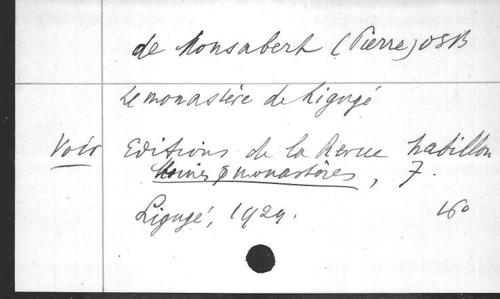 de Monsabert (Pierre) OSB
Le monastère de Ligugé
Voir Editions de la Revue Mabillon
Moines & monastères, 7.
Ligugé, 1929. 16°